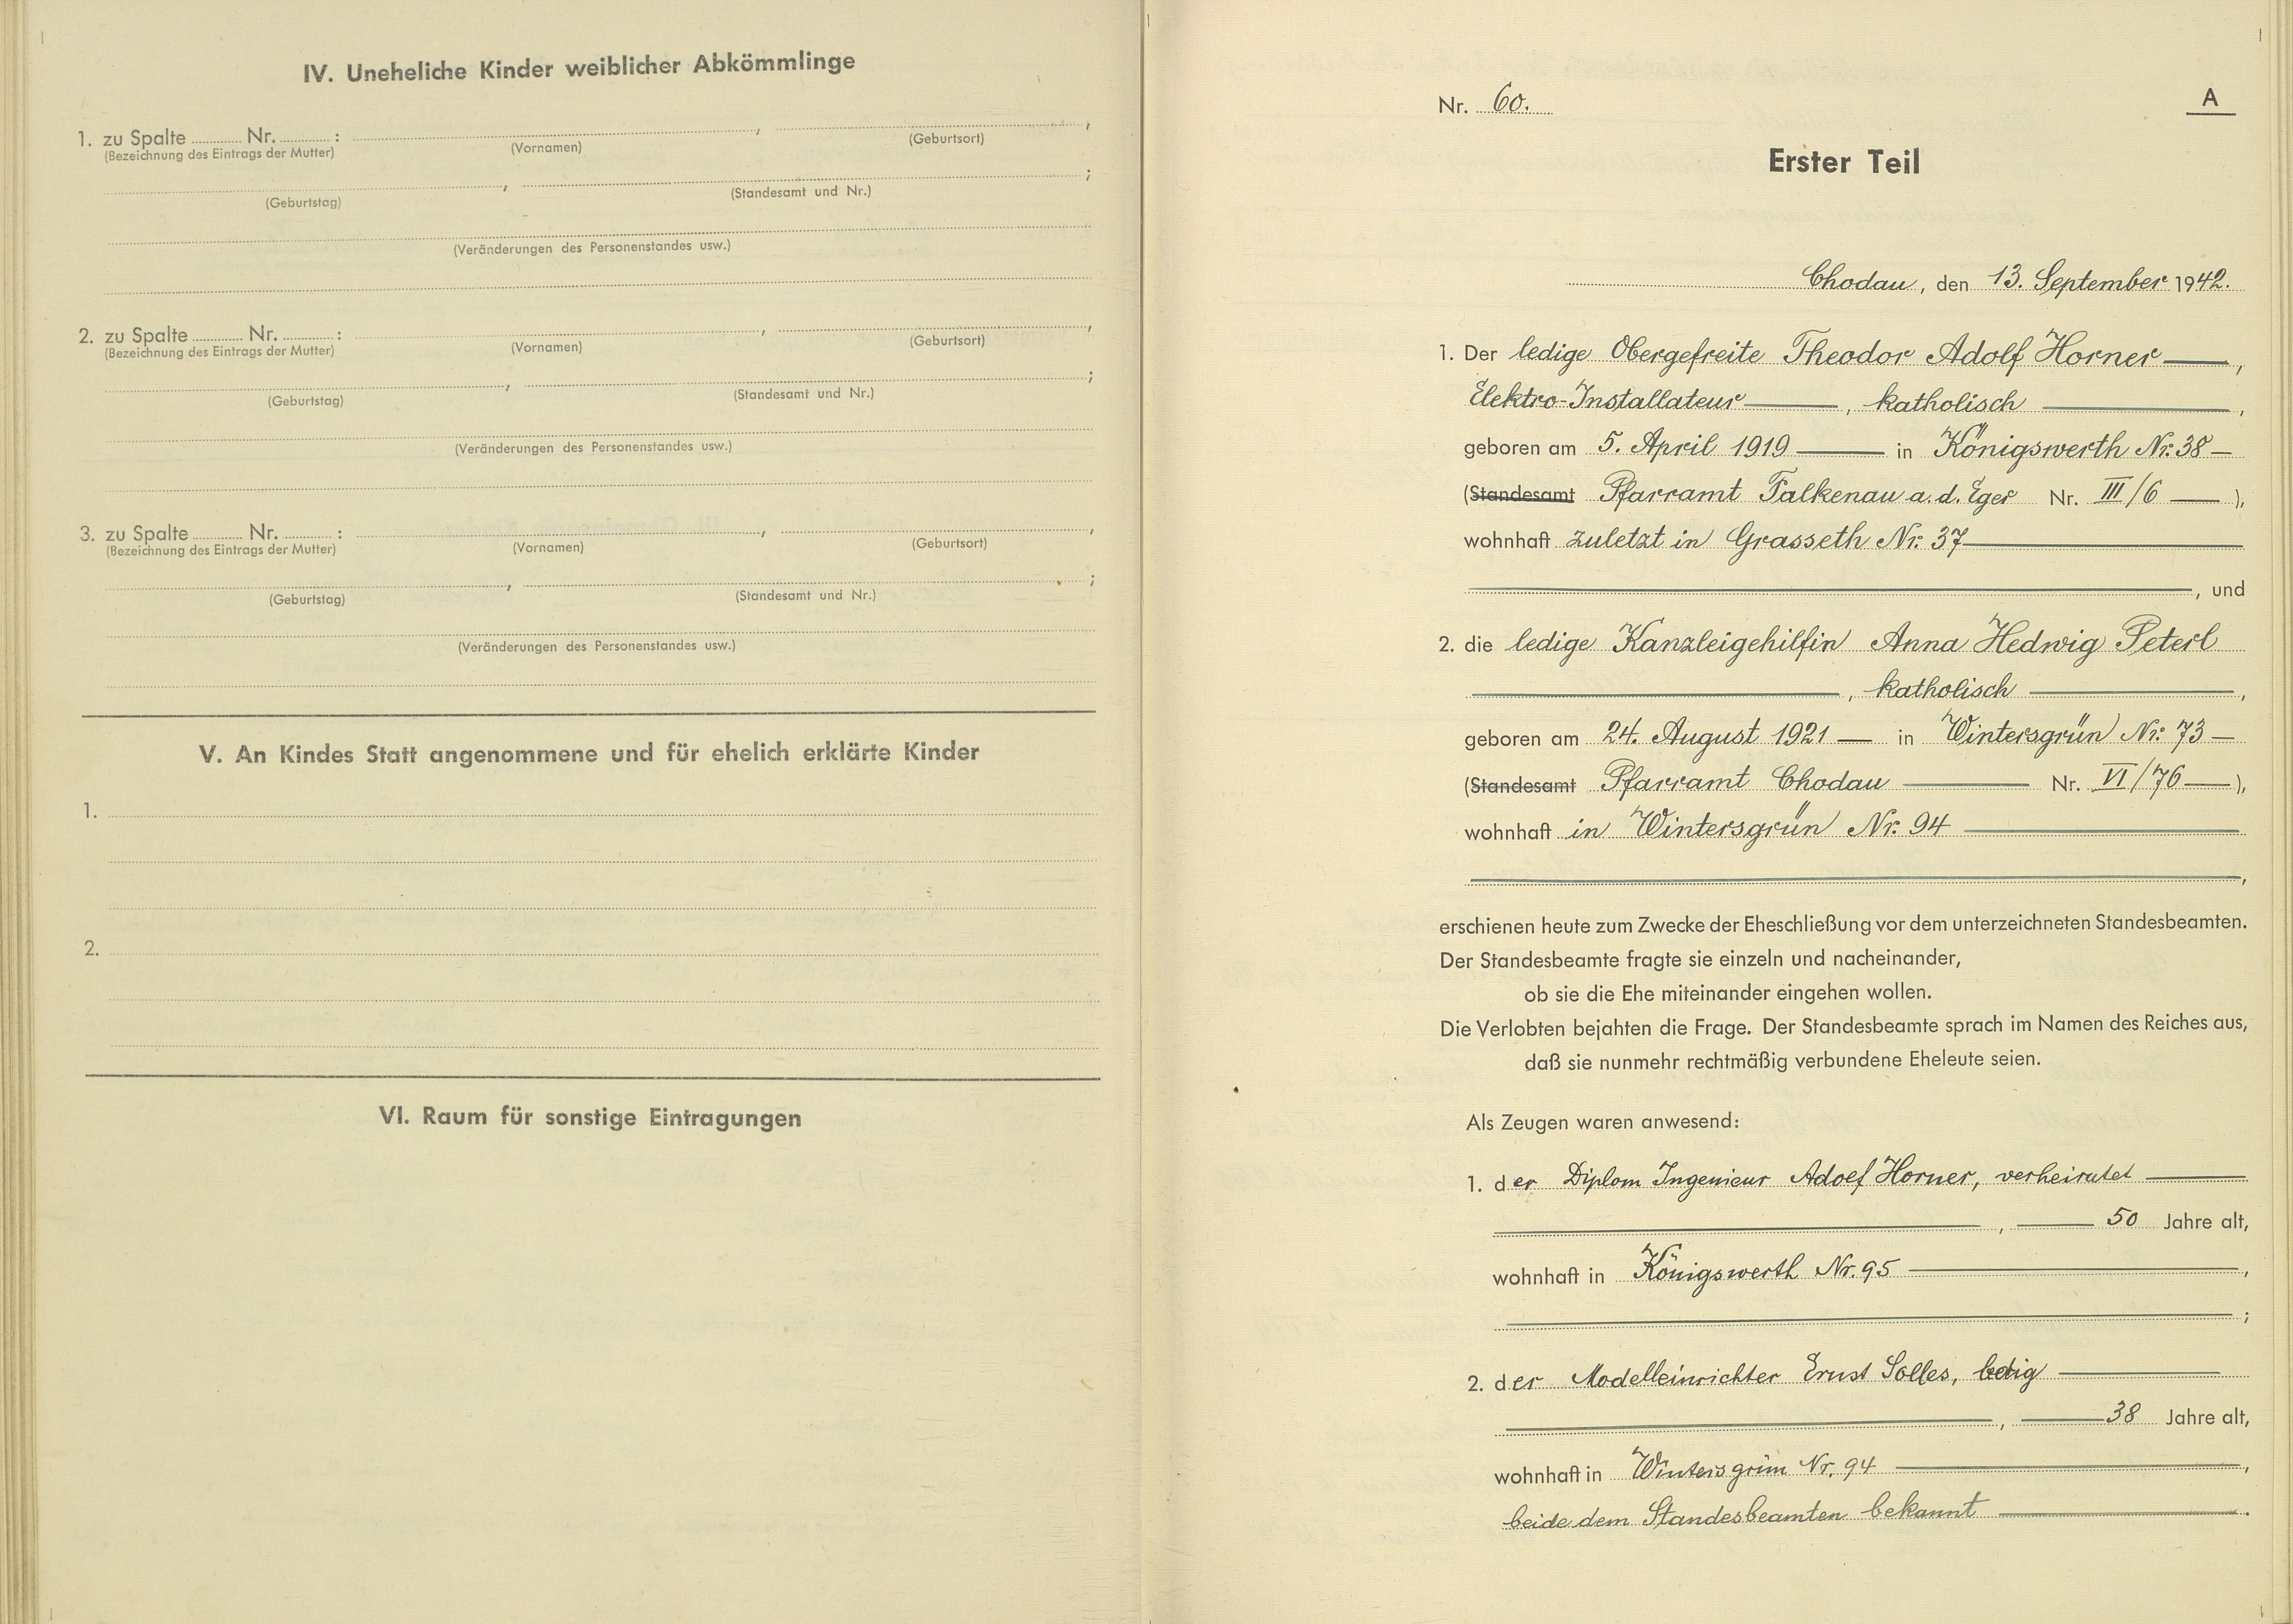 IV. Uneheliche Kinder weiblicher Abkömmlinge
1. zu Spalte ........ Nr. ........ : ........, ........,
(Bezeichnung des Eintrags der Mutter) (Vornamen) (Geburtsort)
........, ........;
(Geburtstag) (Standesamt und Nr.)
(Veränderungen des Personenstandes usw.)
2. zu Spalte ........ Nr. ........ : ........, ........,
(Bezeichnung des Eintrags der Mutter) (Vornamen) (Geburtsort)
........, ........;
(Geburtstag) (Standesamt und Nr.)
(Veränderungen des Personenstandes usw.)
3. zu Spalte ........ Nr. ........ : ........, ........,
(Bezeichnung des Eintrags der Mutter) (Vornamen) (Geburtsort)
........, ........;
(Geburtstag) (Standesamt und Nr.)
(Veränderungen des Personenstandes usw.)
V. An Kindes Statt angenommene und für ehelich erklärte Kinder
1.
2.
VI. Raum für sonstige Eintragungen
Nr. 60. A
Erster Teil
Chodau, den 13. September 1942.
1. Der ledige Obergefreite Theodor Adolf Horner —,
Elektro-Installateur —, katholisch —,
geboren am 5. April 1919 — in Königswerth Nr. 38 —
(Standesamt Pfarramt Falkenau a. d. Eger Nr. III/6 —),
wohnhaft zuletzt in Grasseth Nr. 37 —
—, und
2. die ledige Kanzleigehilfin Anna Hedwig Peterl
—, katholisch —,
geboren am 24. August 1921 — in Wintersgrün Nr. 73 —
(Standesamt Pfarramt Chodau — Nr. VI/76 —),
wohnhaft in Wintersgrün Nr. 94 —
—,
erschienen heute zum Zwecke der Eheschließung vor dem unterzeichneten Standesbeamten.
Der Standesbeamte fragte sie einzeln und nacheinander,
ob sie die Ehe miteinander eingehen wollen.
Die Verlobten bejahten die Frage. Der Standesbeamte sprach im Namen des Reiches aus,
daß sie nunmehr rechtmäßig verbundene Eheleute seien.
Als Zeugen waren anwesend:
1. der Diplom Ingenieur Adolf Horner, verheiratet —
—, — 50 Jahre alt,
wohnhaft in Königswerth Nr. 95 —,
—;
2. der Modelleinrichter Ernst Solles, ledig —
—, — 38 Jahre alt,
wohnhaft in Wintersgrün Nr. 94 —,
beide dem Standesbeamten bekannt —.